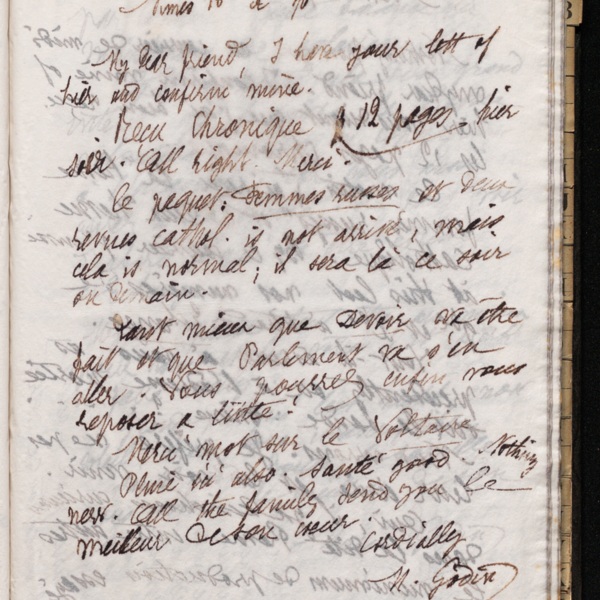 My dear friend, I have your lett of
hier and confirm mine.
Recu Chronique 12 pages hier
soir. All right. Merci.
Le paquet: Femmes russes et deux
revues cathol. is not arrivé, mais
cela is normal; il sera là ce soir
ou demain.
Tant mieux que Devoir va être
fait et que Parlement va s'en
aller. Vous pourrez enfin vous
reposer a little!
Merci mot sur le Voltaire.
Pluie ici also. Santé good. Nothing
new. All the family send you le
meilleur de son coeur.
Cordially
M. Godin